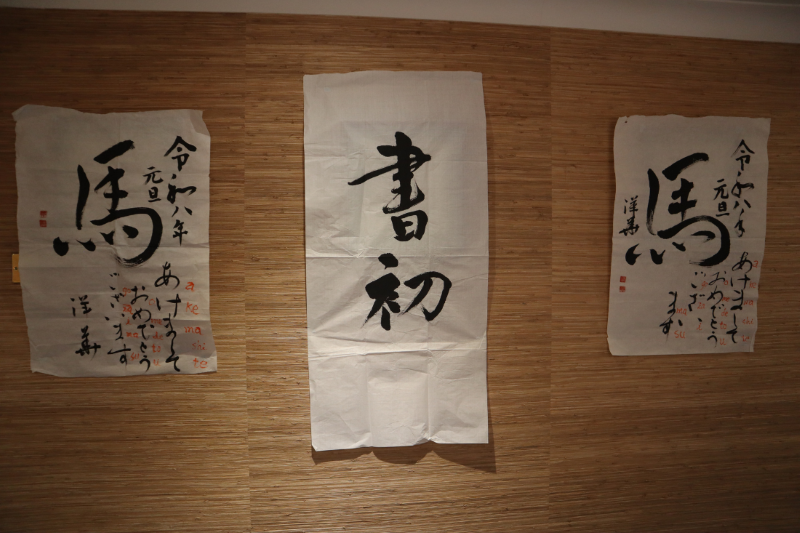 令和八年
元旦
馬
あけまして
おめでとう
ございます
洋華
a ke ma shi te
書初
令和八年
元旦
馬
洋華
あけまして
おめでとう
ござい
ます